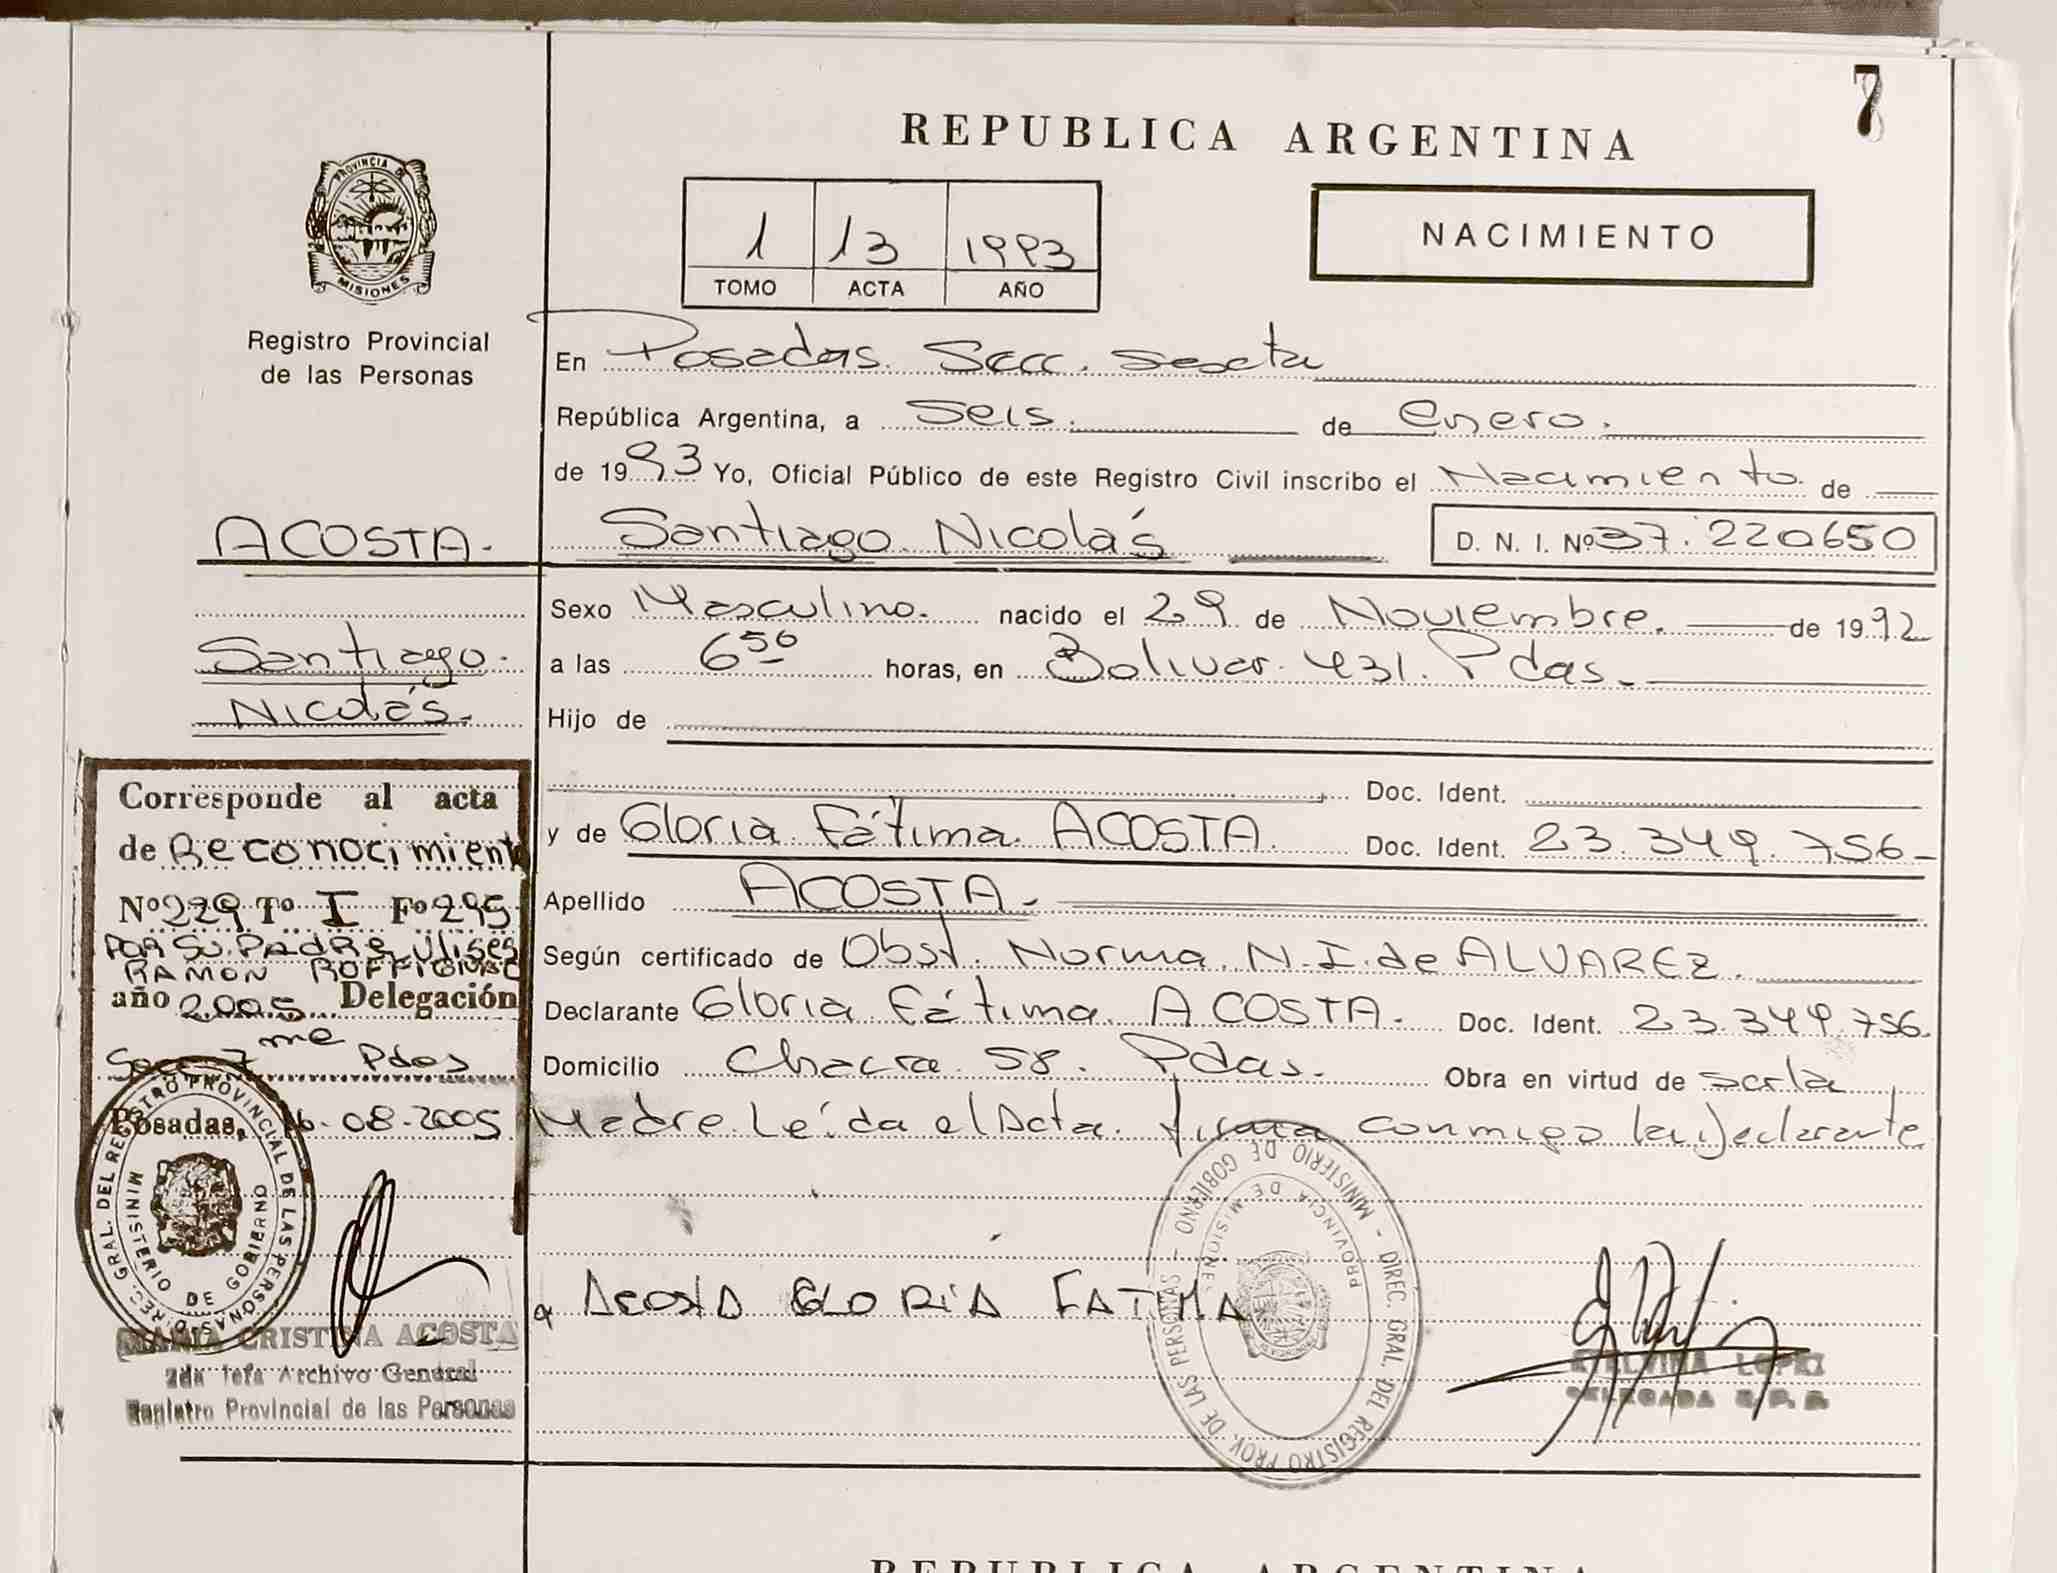 7
REPUBLICA ARGENTINA
PROVINCIA DE
MISIONES
Registro Provincial
de las Personas
1 13 1993
TOMO ACTA AÑO
NACIMIENTO
En Posadas. Secc. Sexta
República Argentina, a Seis. de Enero.
de 1993 Yo, Oficial Público de este Registro Civil inscribo el Nacimiento de
ACOSTA.
Santiago Nicolás D. N. I. Nº 37.220650
Santiago.
Nicolás.
Sexo Masculino. nacido el 29 de Noviembre. de 1992
a las 6 50 horas, en Bolivar. 431. Pdas.
Hijo de
Doc. Ident.
y de Gloria Fátima ACOSTA. Doc. Ident. 23.349.756-
Apellido ACOSTA.
Según certificado de Obst. Norma. N.I. de ALVAREZ.
Declarante Gloria Fátima ACOSTA. Doc. Ident. 23.349.756.
Domicilio Chacra 58. Pdas. Obra en virtud de ser la
Madre. Leída el Acta. firma conmigo la Declarante
Corresponde al acta
de Reconocimiento
Nº 229 Tº I Fº 295
POR SU PADRE ULISES
RAMON
año 2005 Delegación
Secc 7 me Pdas
Posadas, 16-08-2005
REG. GRAL. DEL REGISTRO PROVINCIAL DE LAS PERSONAS
MINISTERIO DE GOBIERNO
MARIA CRISTINA ACOSTA
2da Jefa Archivo General
Registro Provincial de las Personas
ACOSTA GLORIA FATIMA
MINISTERIO DE GOBIERNO - DIREC. GRAL. DEL REGISTRO PROV. DE LAS PERSONAS -
PROVINCIA DE MISIONES
ETELVINA LOPEZ
DELEGADA R.P.P.
REPUBLICA ARGENTINA